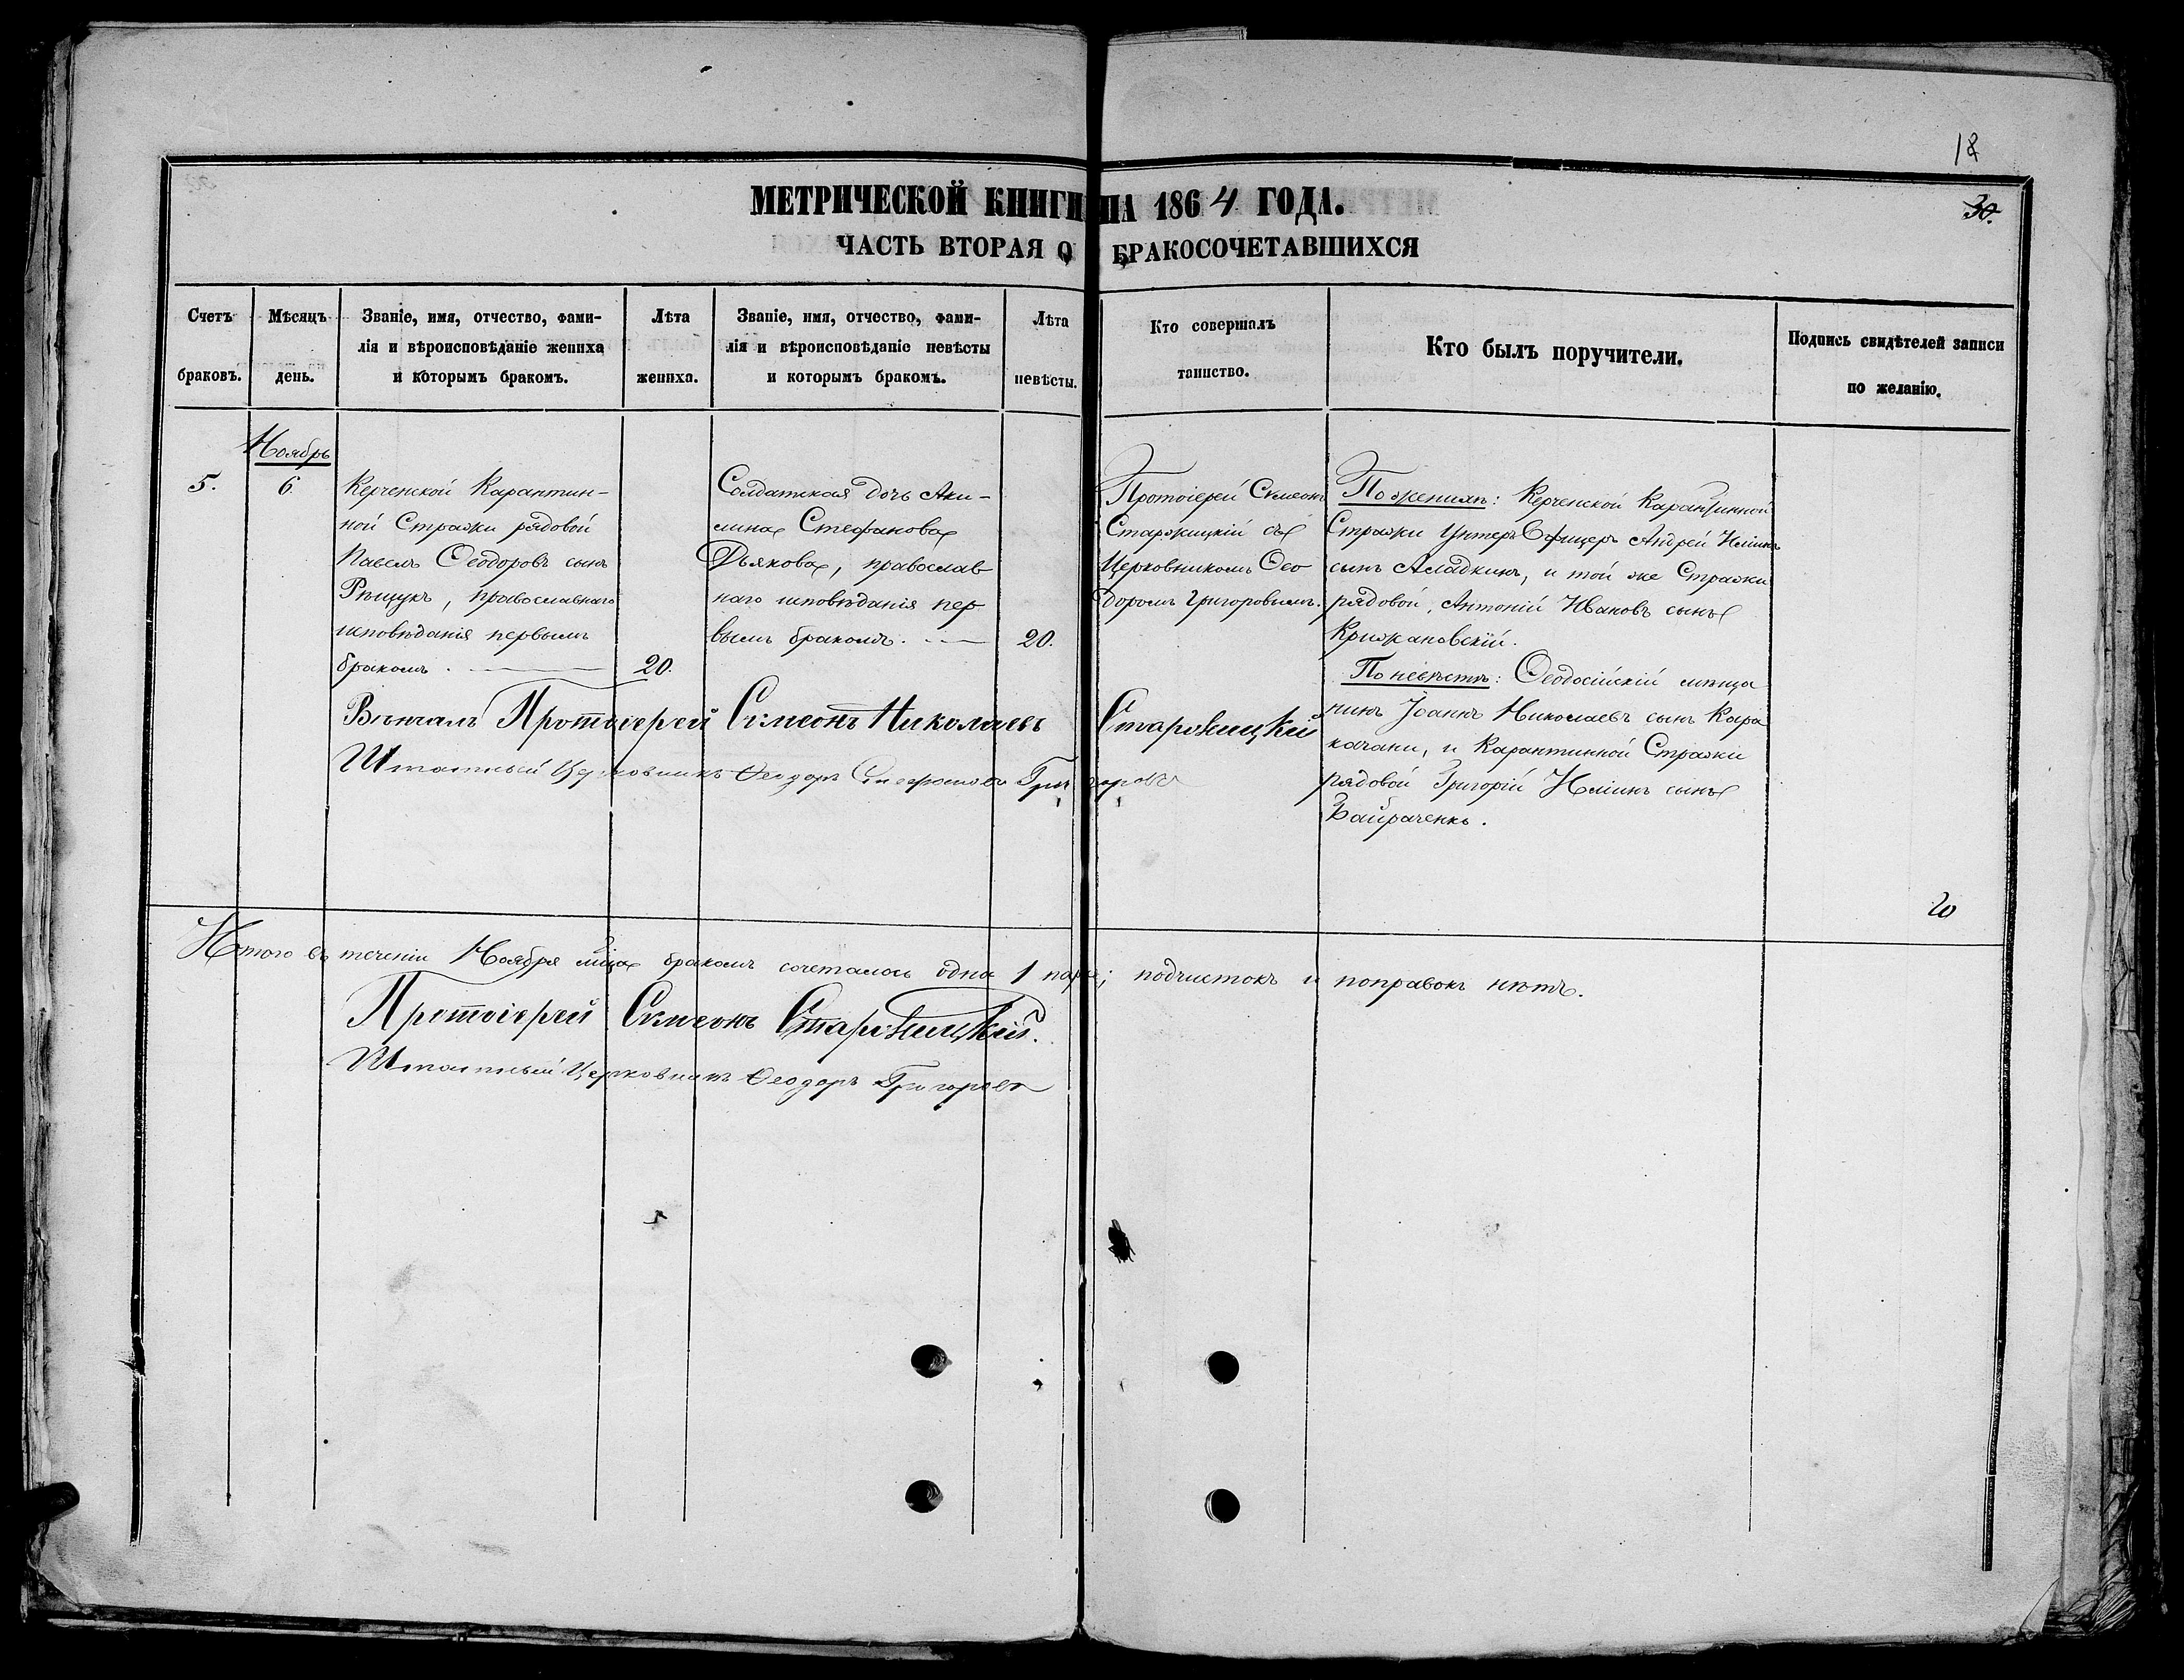 18
30.
МЕТРИЧЕСКОЙ КНИГИ НА 1864 ГОДА.
ЧАСТЬ ВТОРАЯ О БРАКОСОЧЕТАВШИХСЯ
Счетъ
браковъ.
Мѣсяцъ
день.
Званіе, имя, отчество, фами-
лія и вѣроисповѣданіе жениха
и которымъ бракомъ.
Лѣта
жениха.
Званіе, имя, отчество, фами-
лія и вѣроисповѣданіе невѣсты
и которымъ бракомъ.
Лѣта
невѣсты.
Кто совершалъ
таинство.
Кто былъ поручители.
Подпись свидѣтелей записи
по желанію.
Ноябрь
5.
6.
Керченской Карантин-
ной Стражи рядовой
Павелъ Ѳеодоровъ сынъ
Рѣщукъ, православнаго
исповѣданія первымъ
бракомъ.
20.
Солдатская дочь Аки-
лина Стефанова
Дьякова, православ
наго исповѣданія пер
вымъ бракомъ.
20.
Протоіерей Сѵмеонъ
Старжицкій съ
Церковникомъ Ѳео
доромъ Григоровымъ.
По женихѣ: Керченской Карантинной
Стражи Унтеръ Офицеръ Андрей Иліинъ
сынъ Аладкинъ, и той же Стражи
рядовой, Антоній Ивановъ сынъ
Крижановскій.
По невѣстѣ: Ѳеодосійскій мѣща
нинъ Іоаннъ Николаевъ сынъ Кара
качани, и Карантинной Стражи
рядовой Григорій Иліинъ сынъ
Байраченкъ.
Вѣнчалъ Протоіерей Сѵмеонъ Николаевъ Старжицкій
Штатный Церковникъ Ѳеодоръ Григоровъ
20
Итого въ теченіи Ноября мѣца бракомъ сочеталось одна 1 пара; подчистокъ и поправокъ нѣтъ.
Протоіерей Сѵмеонъ Старжицкій.
Штатный Церковникъ Ѳеодоръ Григоровъ